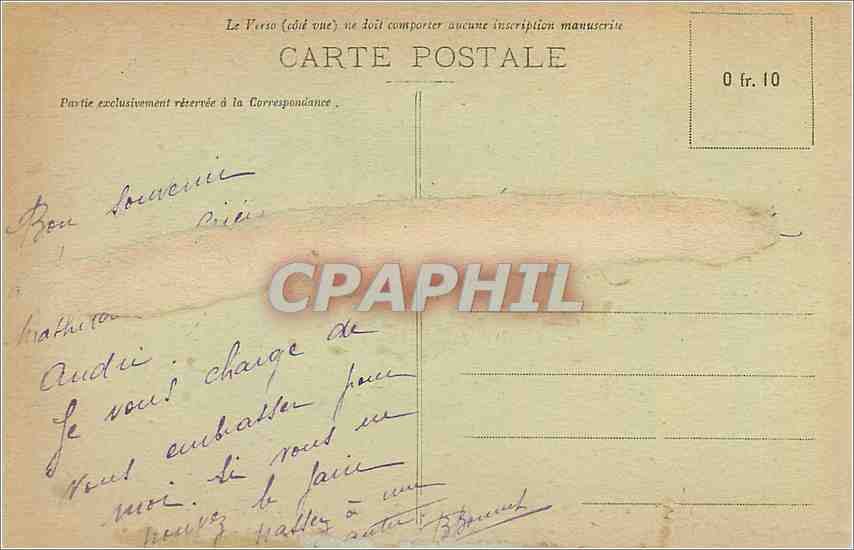 Le Verso (côté vue) ne doit comporter aucune inscription manuscrite
CARTE POSTALE
0 fr. 10
Partie exclusivement réservée à la Correspondance.
Bon souvenir
CPAPHIL
André.
Je vous charge de
vous embrasser pour
moi. Si vous ne
pouvez le faire
passez à une
autre. B Bonnet